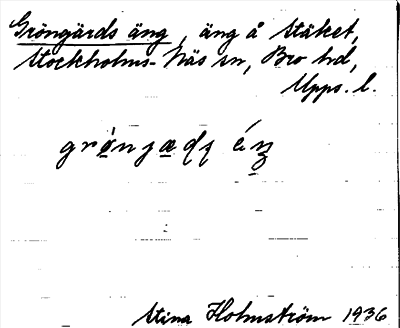 Gröngärds äng, äng å Stäket,
Stockholms-Näs sn, Bro hd,
Upps. l.
Stina Holmström 1936